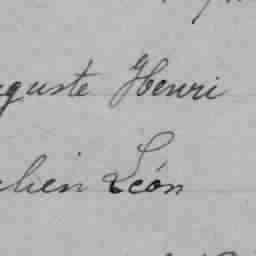 guste Henri
lien Léon